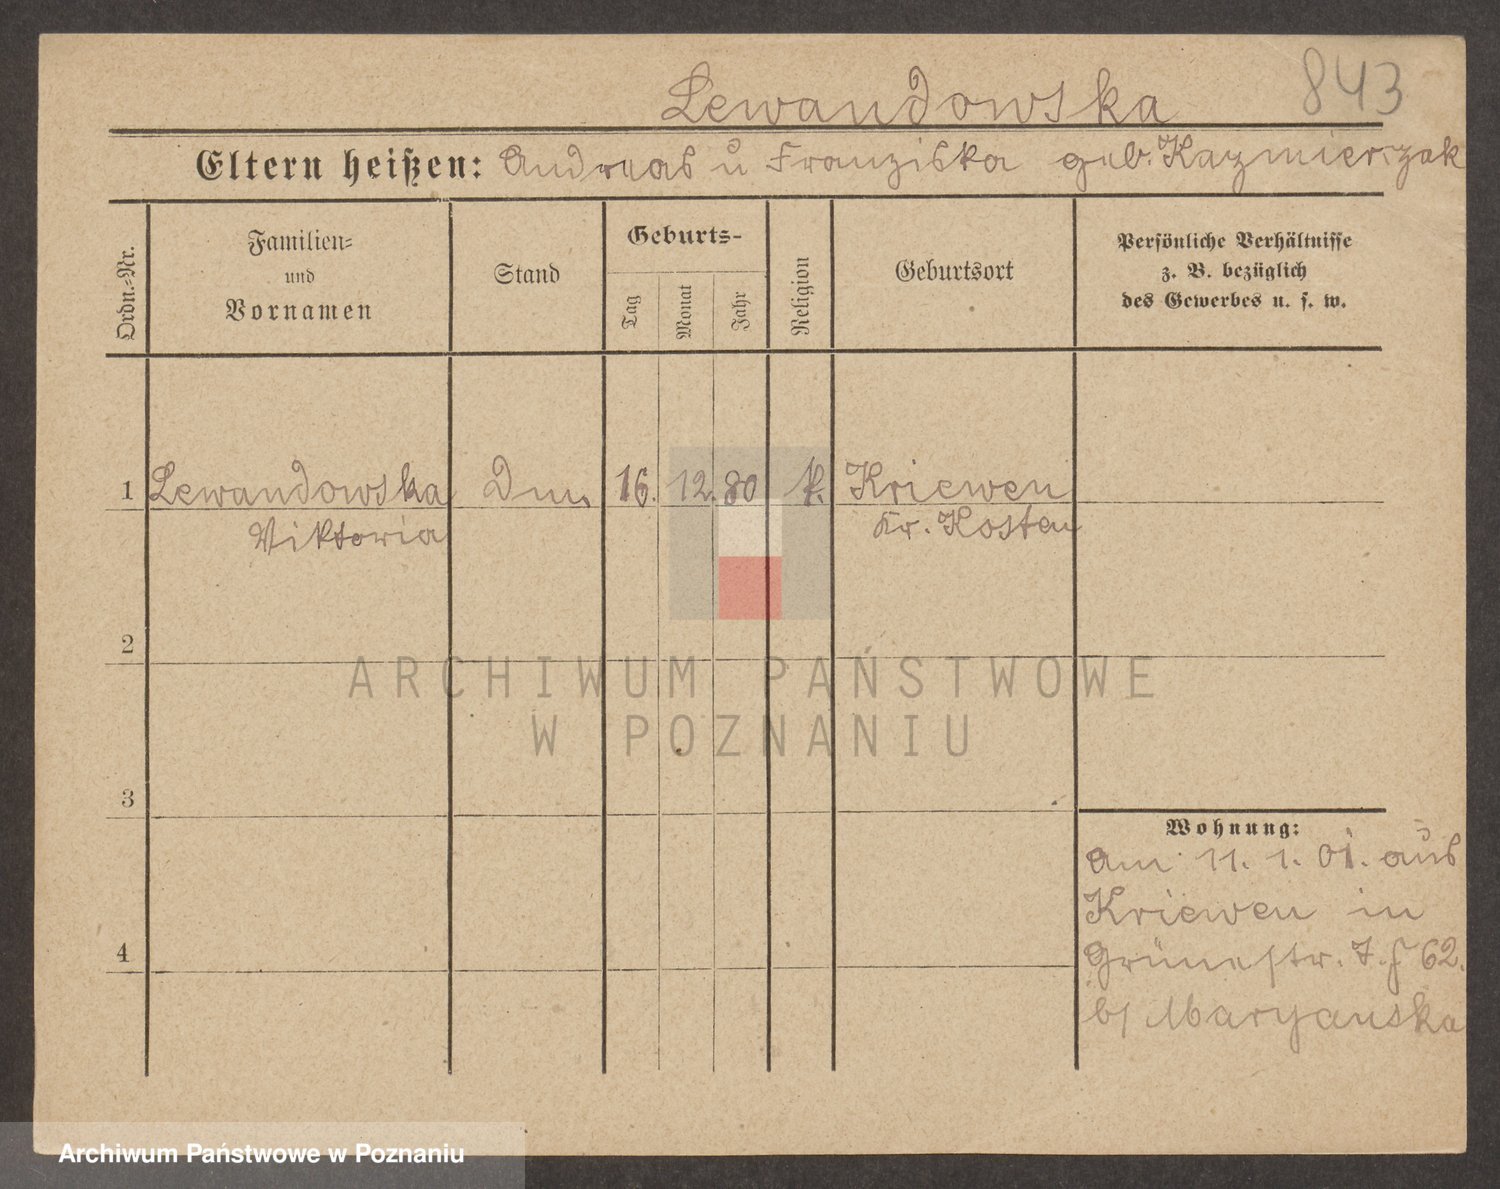 843
Lewandowska
Eltern heißen: Andreas u Franziska geb. Kazmierczak
Ordn.=Nr.
Familien=
und
Vornamen
Stand
Geburts-
Tag
Monat
Jahr
Religion
Geburtsort
Persönliche Verhältnisse
z. B. bezüglich
des Gewerbes u. s. w.
1 Lewandowska 16. 12. 80 k. Kriewen
Viktoria Kr. Kosten
2
3
4
Wohnung:
am 11. 1. 01. aus
Kriewen in
Grünestr. 62.
b/ Maryanska
ARCHIWUM PAŃSTWOWE
W POZNANIU
Archiwum Państwowe w Poznaniu